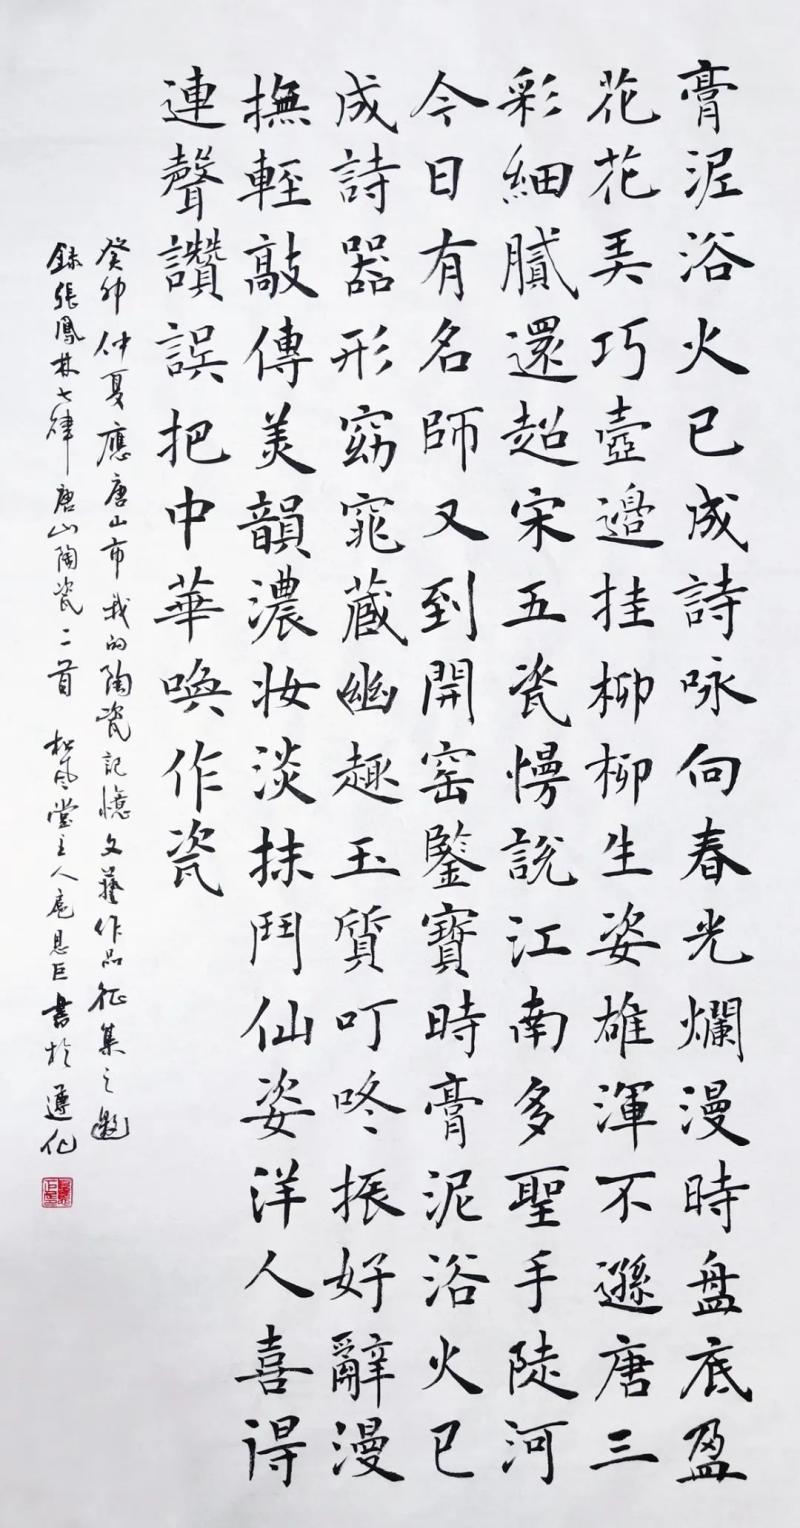 膏泥浴火已成詩咏向春光爛漫時盤底盈
花花弄巧壺邉挂柳柳生姿雄渾不遜唐三
彩細膩還超宋五瓷愕說江南多聖手陡河
今日有名師又到開窑鑒寶時膏泥浴火已
成詩器形窈窕蔵幽趣玉質叮咚振好辭漫
撫輕敲傳美韻濃妝淡抹鬥仙姿洋人喜得
連聲讚誤把中華喚作瓷
癸卯仲夏應唐山市我的陶瓷記憶文藝作品征集之邀
錄張鳳林七律唐山陶瓷二首 松風堂主人庞恩巨書於遵化